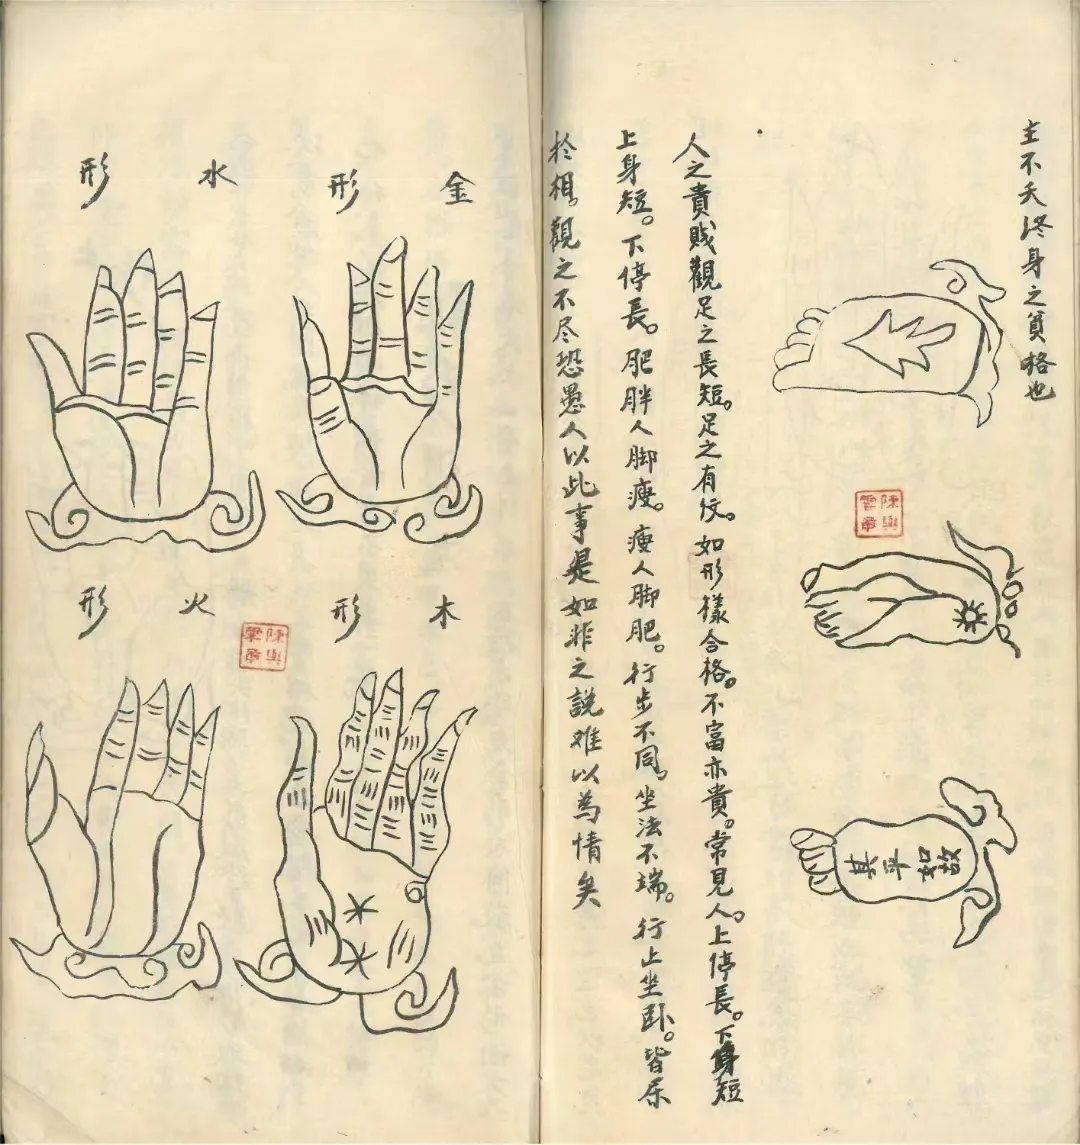 主不夭終身之貧格也
其平如故
人之貴賤觀足之長短。足之有伩。如形樣合格。不富亦貴。常見人。上停長。下身短
上身短。下停長。肥胖人脚瘦。瘦人脚肥。行步不同。坐法不端。行止坐卧。皆
於相。觀之不尽恐愚人以此事是如非之說难以為情矣
金形
水形
木形
火形